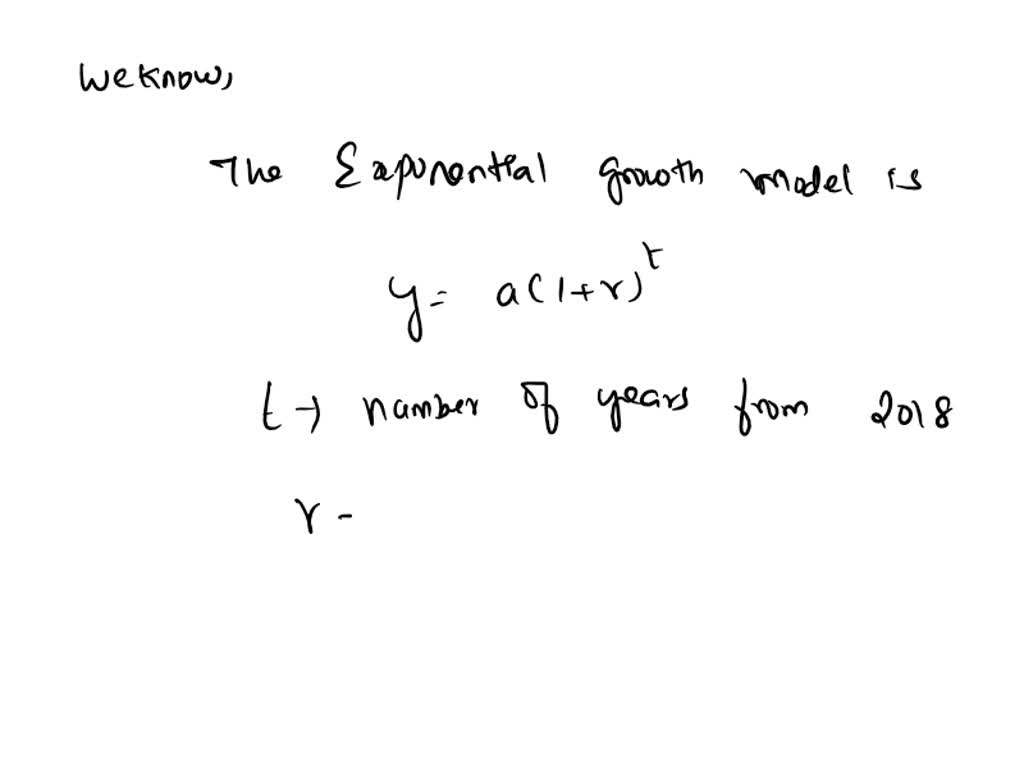 We know,
The Exponential growth model is
y = a(1+r)^t
t → number of years from 2018
r -